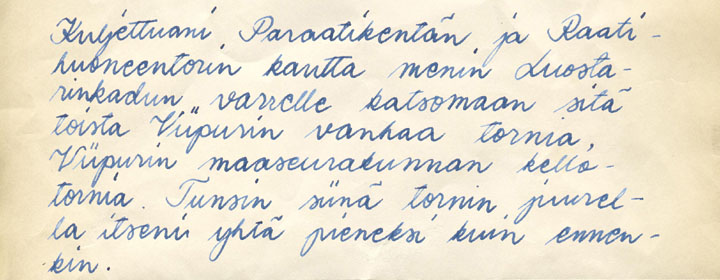 Kuljettuani Paraatikentän ja Raati-
huoneentorin kautta menin Luosta-
rinkadun varrelle katsomaan sitä
toista Viipurin vanhaa tornia,
Viipurin maaseurakunnan kello-
tornia. Tunsin siinä tornin juurel-
la itseni yhtä pieneksi kuin ennen-
kin.